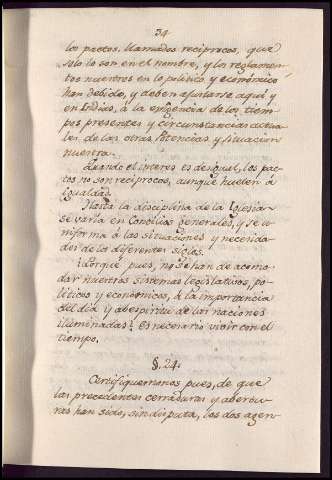 34
los pactos, llamados reciprocos, que
solo lo son en el nombre, y los reglamen-
tos nuestros en lo politico y económico
han debido, y deben ajustarse aqui y
en Indias, à la exigencia de los tiem-
pos presentes y circunstancias actua-
les de las otras Potencias y situacion
nuestra.
Quando el interes es desigual, los pac-
tos no son reciprocos, aunque huelen à
igualdad.
Hasta la disciplina de la Iglesia
se varía en Concilios generales, y se u-
niforma à las situaciones y necesida-
des de los diferentes siglos.
¿Porqué pues, no se han de acomo-
dar nuestros sistemas legislativos, po-
liticos y economicos, à la importancia
del dia y al espiritu de las naciones
iluminadas? Es necesario vivir con el
tiempo.
§. 24.
Certifiquemonos pues, de que
las precedentes cerraduras y abertu-
ras han sido, sin disputa, los dos agen-